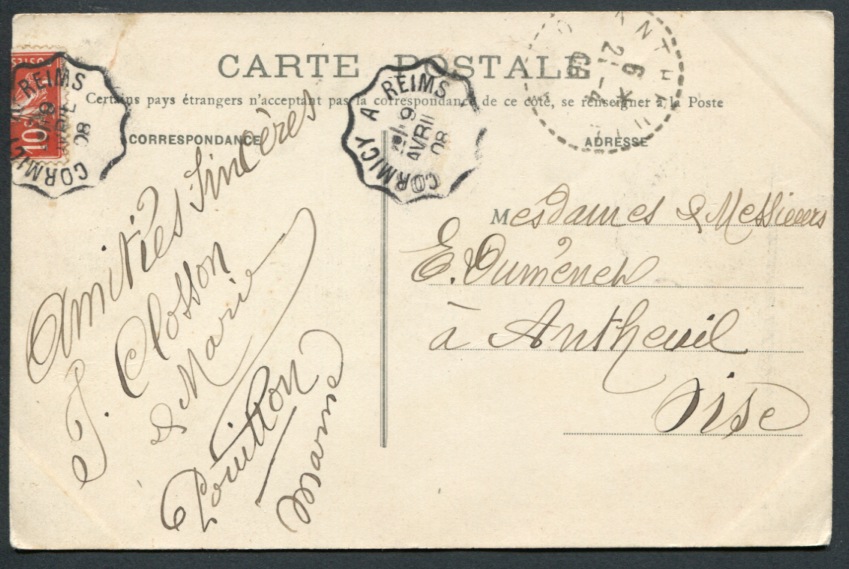 CARTE POSTALE
Certains pays étrangers n'acceptant pas la correspondance de ce côté, se renseigner à la Poste
CORRESPONDANCE
ADRESSE
10
CORMICY A REIMS
AVRIL
08
CORMICY A REIMS
9
AVRIL
08
6 *
21-4
08
Amitiés Sincères
J. Closson
& Marie
Pouillon
Marne
Mesdames & Messieurs
E. Duménel
à Antheuil
Oise